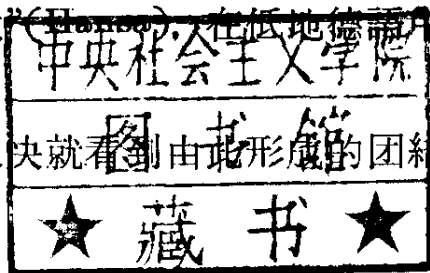 ”(Hansa)，在低地德語
中央社会主义学院
图书馆
就看到由此形成的团結
★ 藏书 ★